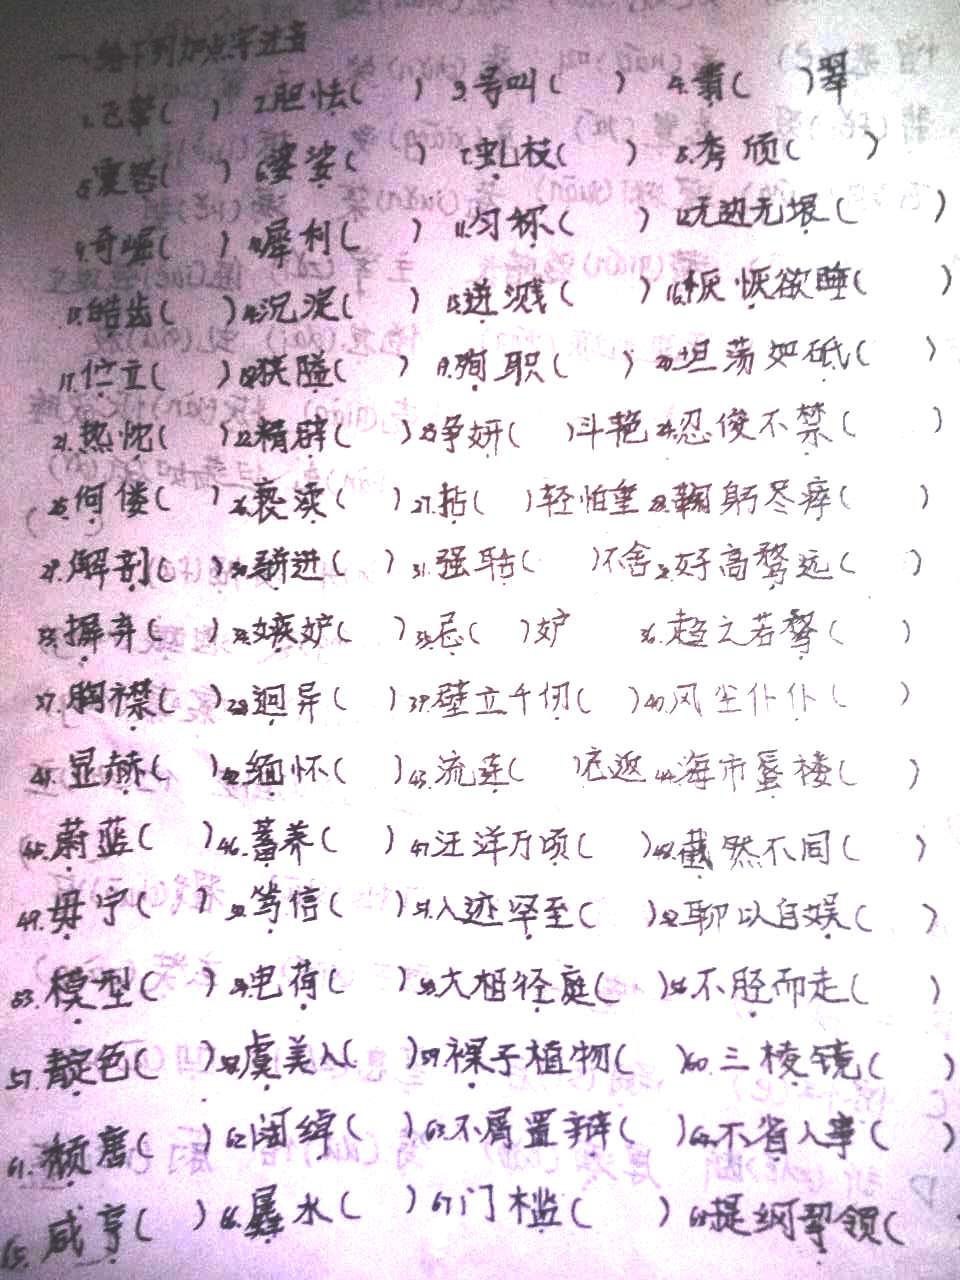 一.给下列加点字注音
1.巴掌( ) 2.胆怯( ) 3.号叫( ) 4.翡( )翠
5.宽答( ) 6.婆娑( ) 7.虬枝( ) 8.秀颀( )
9.奇崛( ) 10.犀利( ) 11.匀称( ) 12.无边无垠( )
13.皓齿( ) 14.沉淀( ) 15.迸溅( ) 16.恹恹欲睡( )
17.伫立( ) 18.狭隘( ) 19.殉职( ) 20.坦荡如砥( )
21.热忱( ) 22.精辟( ) 23.争妍( )斗艳 24.忍俊不禁( )
25.佝偻( ) 26.亵渎( ) 27.拈( )轻怕重 28.鞠躬尽瘁( )
29.解剖( ) 30.骈进( ) 31.强聒( )不舍 32.好高骛远( )
33.摒弃( ) 34.嫉妒( ) 35.忌( )妒 36.趋之若鹜( )
37.胸襟( ) 38.迥异( ) 39.壁立千仞( ) 40.风尘仆仆( )
41.显赫( ) 42.缅怀( ) 43.流连( )忘返 44.海市蜃楼( )
45.蔚蓝( ) 46.蓄养( ) 47.汪洋万顷( ) 48.截然不同( )
49.毋宁( ) 50.笃信( ) 51.人迹罕至( ) 52.聊以自娱( )
53.模型( ) 54.电荷( ) 55.大相径庭( ) 56.不胫而走( )
57.靛色( ) 58.虞美人( ) 59.裸子植物( ) 60.三棱镜( )
61.颓唐( ) 62.阔绰( ) 63.不屑置辩( ) 64.不省人事( )
65.咸亨( ) 66.羼水( ) 67.门槛( ) 68.提纲挈领(